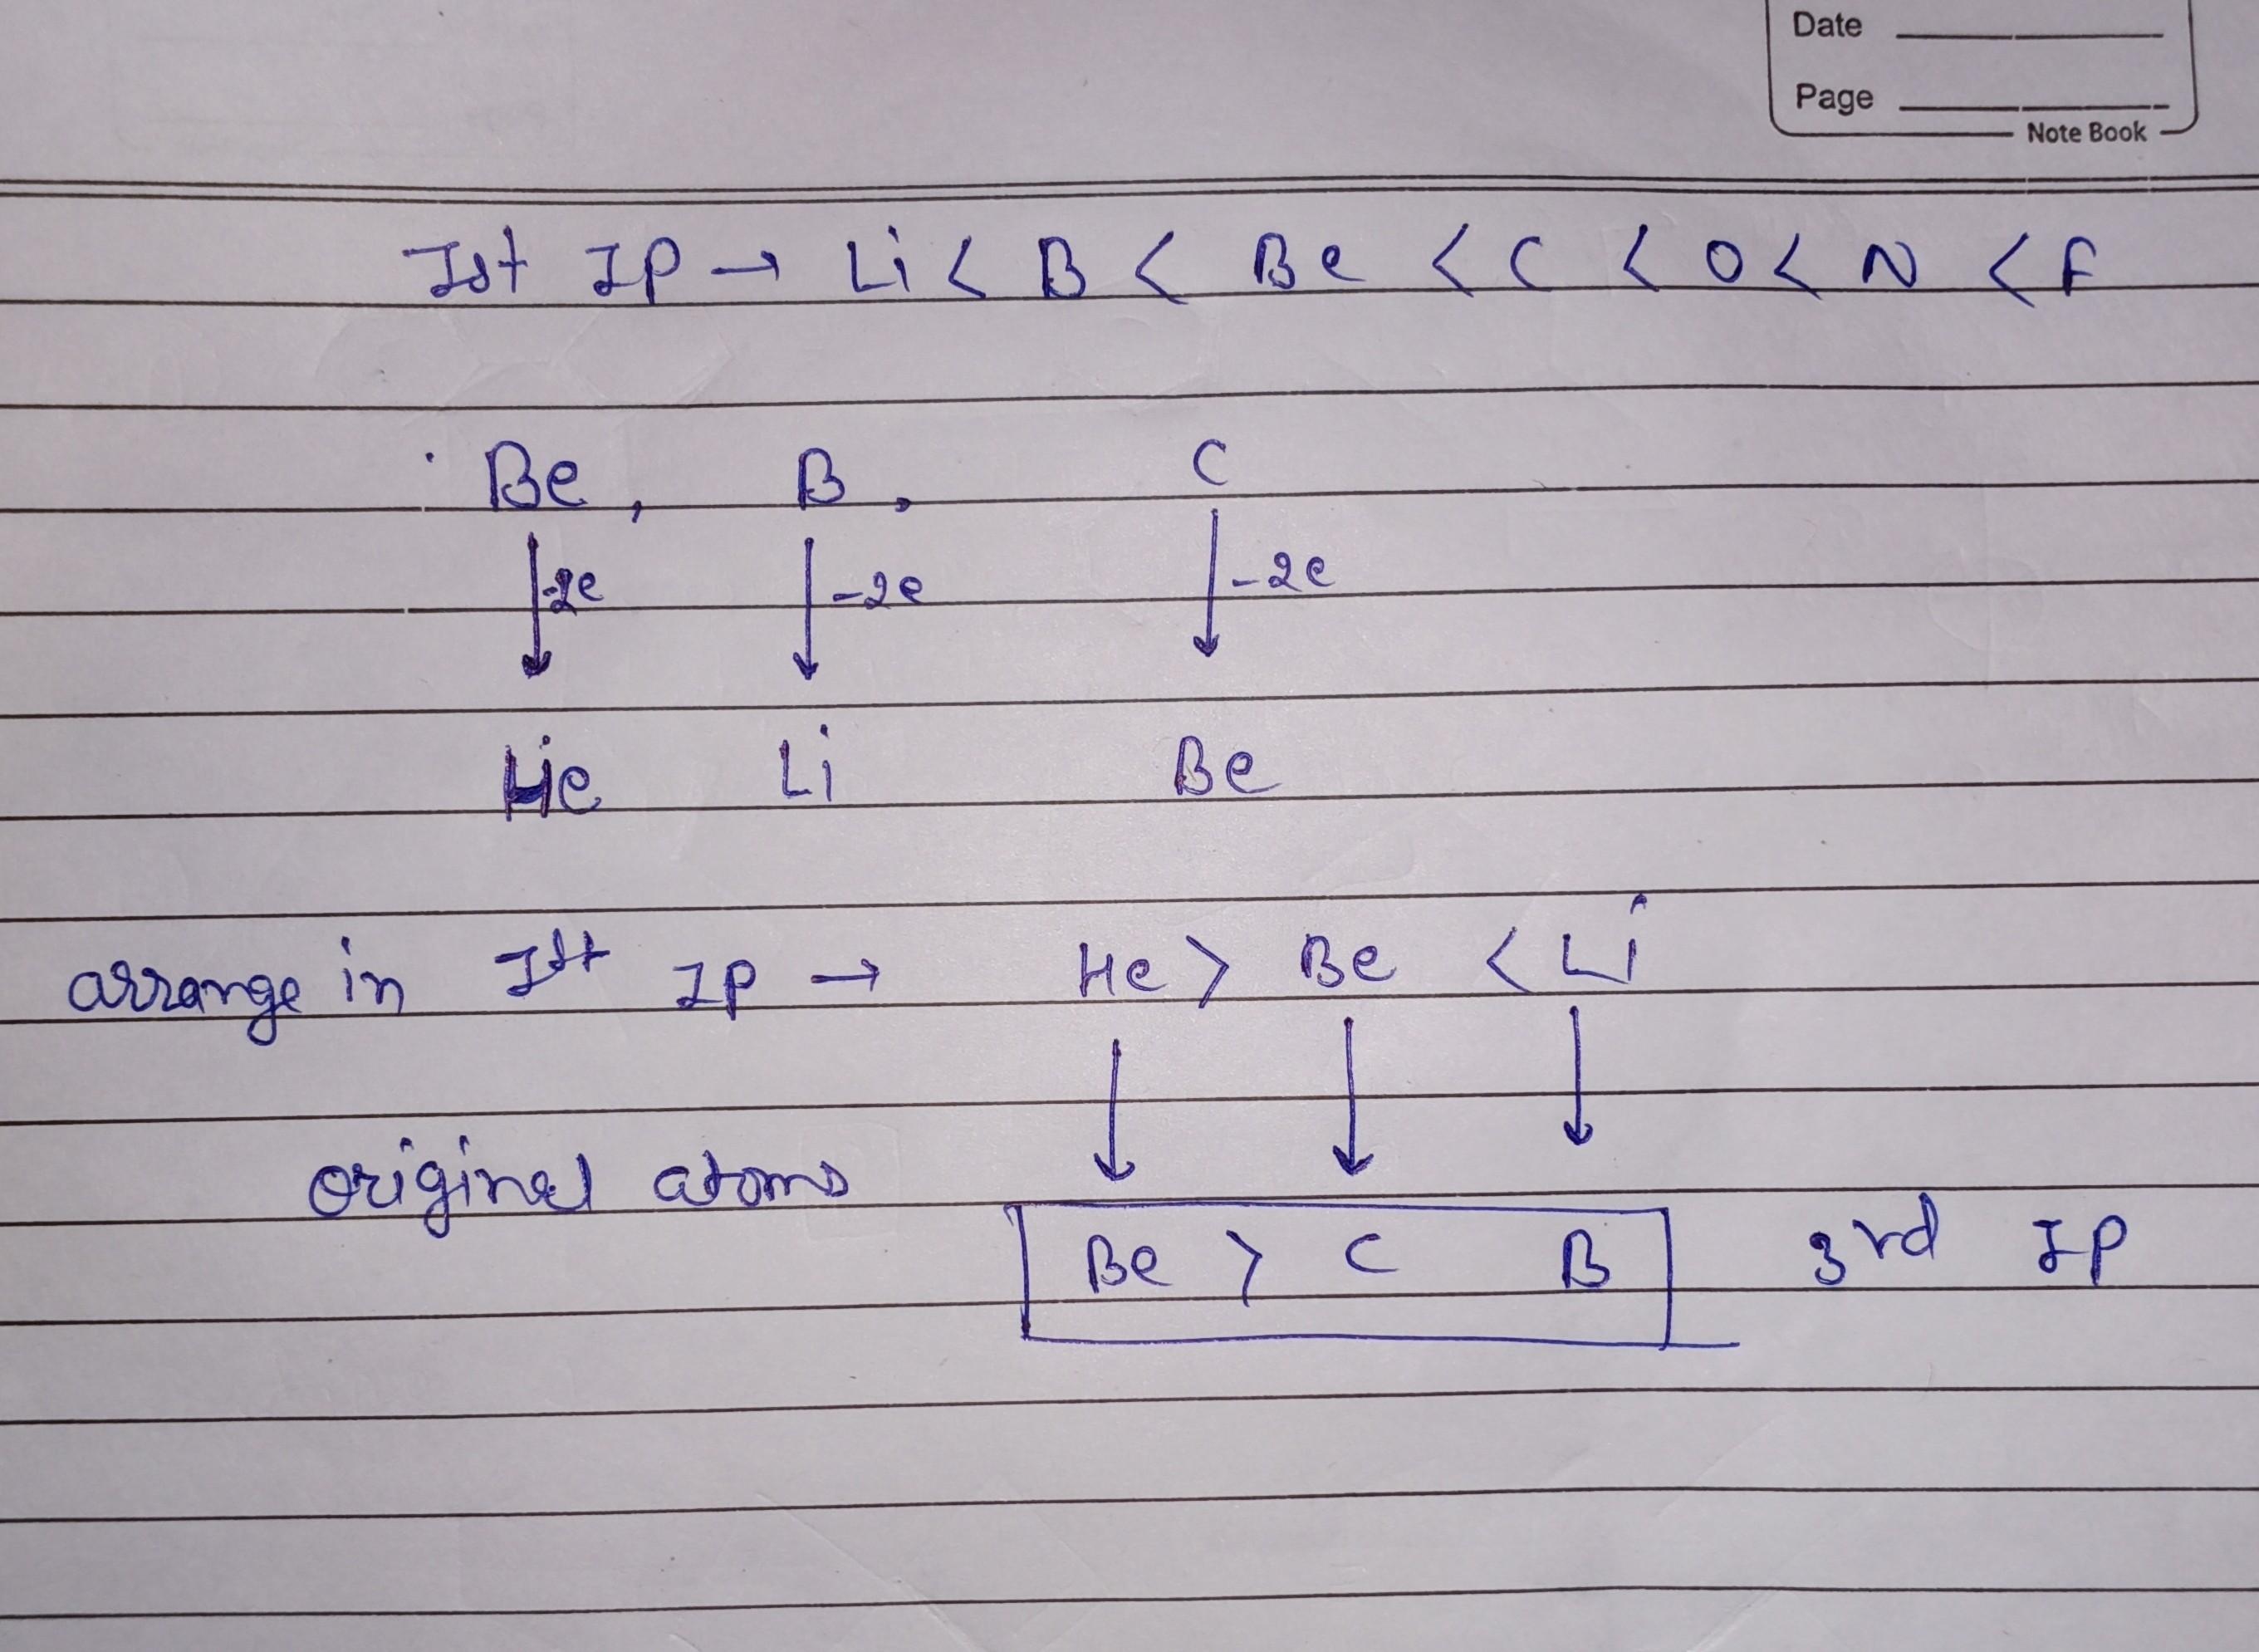 Date
Page
Note Book
Ist IP → Li < B < Be < C < O < N < F
Be, B, C
-2e -2e -2e
He Li Be
arrange in Ist IP → He > Be < Li
original atoms
Be > C B 3rd IP